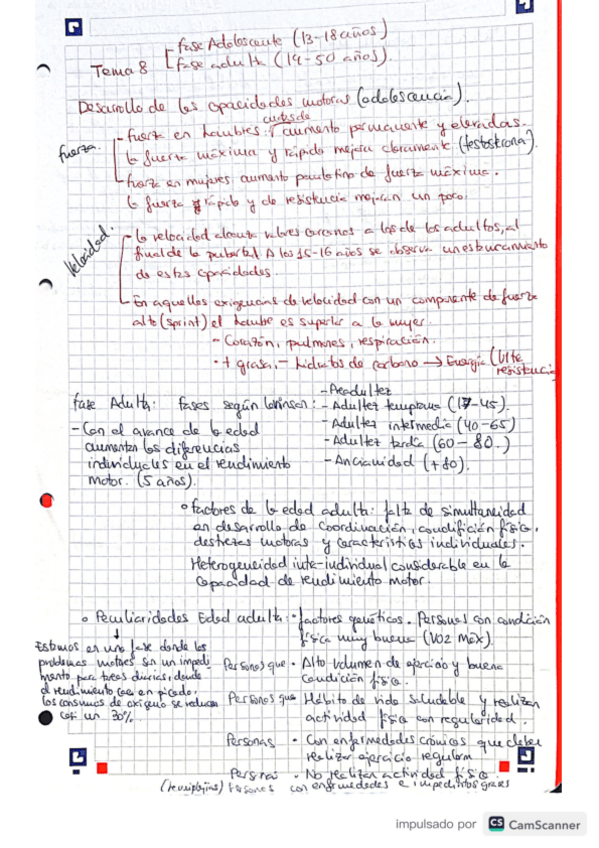 Fase Adolescente (13-18 años)
Tema 8 Fase adulta (19-50 años).
Desarrollo de las capacidades motoras (adolescencia).
Fuerza.
- Fuerza en hombres: aumento permanente y elevadas.
la fuerza máxima y rápida mejora claramente (testosterona).
- Fuerza en mujeres, aumento paulatino de fuerza máxima.
la fuerza rápida y de resistencia mejoran un poco.
Velocidad.
- la velocidad alcanza valores cercanos a los de los adultos, al
final de la pubertad. A los 15-16 años se observa un
de estas capacidades.
- En aquellas exigencias de velocidad con un componente de fuerza
alto (sprint) el hombre es superior a la mujer.
- Corazón, pulmones, respiración.
+ grasa, - hidratos de carbono → Energía (Ultra
resistencia
Fase Adulta: Fases según
- Preadultez
- Adultez temprana (17-45).
- Adultez intermedia (40-65)
- Adultez tardía (60-80.)
- Ancianidad (+80).
- Con el avance de la edad
aumentan las diferencias
individuales en el rendimiento
motor. (5 años).
Factores de la edad adulta: falta de simultaneidad
en desarrollo de coordinación, condición física,
destrezas motoras y características individuales.
Heterogeneidad inter-individual considerable en la
capacidad de rendimiento motor.
Peculiaridades Edad adulta: • Factores genéticos. Personas con condición
física muy buena (VO2 Máx).
Estamos en una fase donde los
problemas motores son un impedi-
mento para tareas diarias, donde
el rendimiento cae en picado,
los consumos de oxígeno se reducen
casi un 30%.
Personas que • Alto volumen de ejercicio y buena
condición física.
Personas que Hábito de vida saludable y realizan
actividad física con regularidad.
Personas • Con enfermedades crónicas que deben
realizar ejercicio regular
Personas • No realizan actividad física
Personas con enfermedades e impedimentos graves
impulsado por CS CamScanner